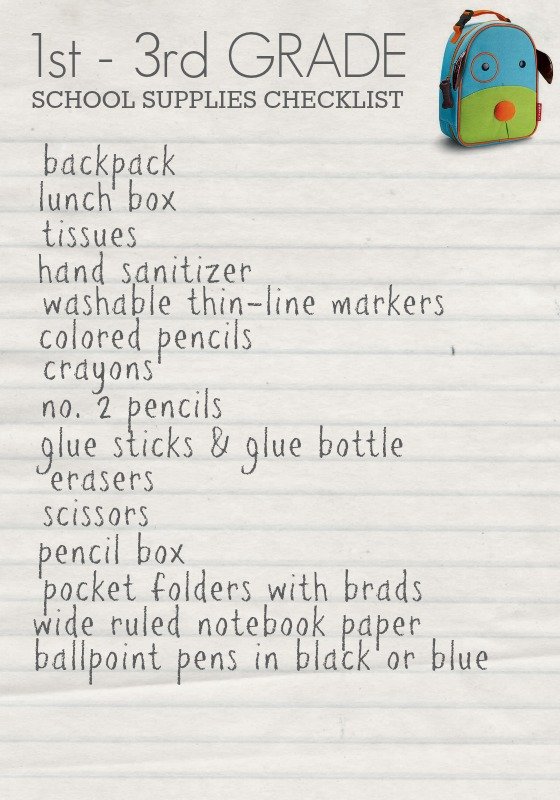 1st - 3rd GRADE
SCHOOL SUPPLIES CHECKLIST
backpack
lunch box
tissues
hand sanitizer
washable thin-line markers
colored pencils
crayons
no. 2 pencils
glue sticks & glue bottle
erasers
scissors
pencil box
pocket folders with brads
wide ruled notebook paper
ballpoint pens in black or blue